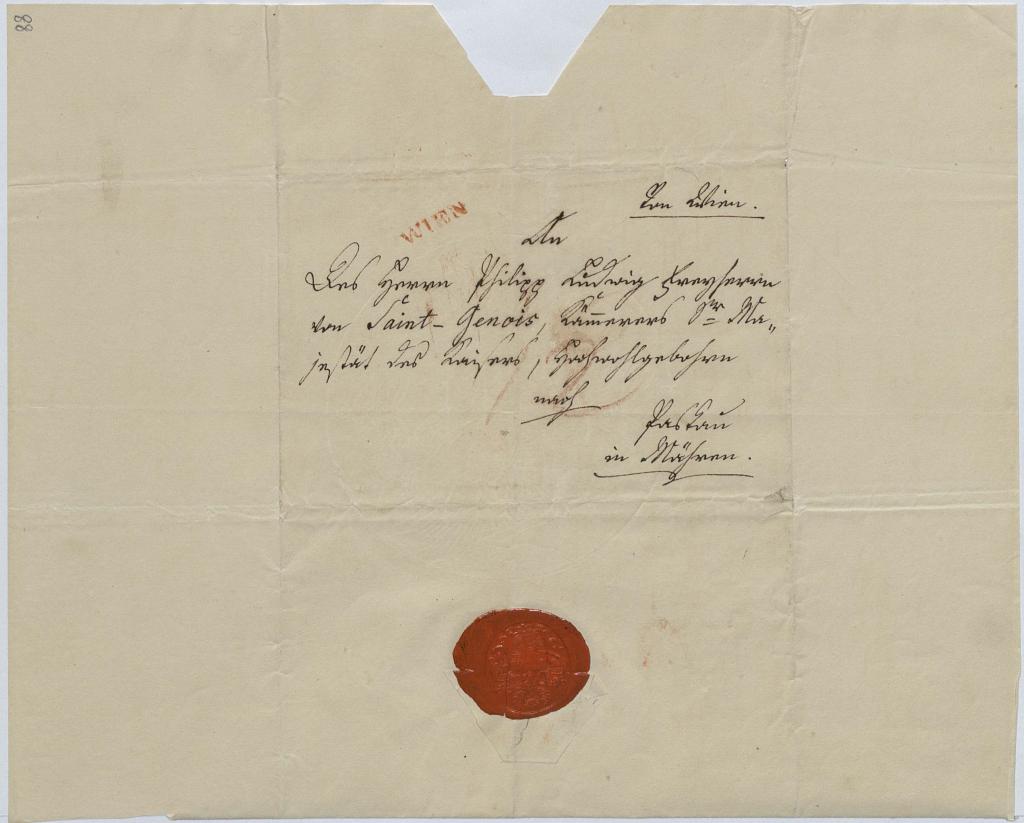 88
Von Wien.
WIEN
An
Des Herrn Philipp Ludwig Freyherrn
von Saint-Genois, Kämmerers Sr Ma„
jestät des Kaisers, Hochwohlgebohrn
nach
Paskau
in Mähren.